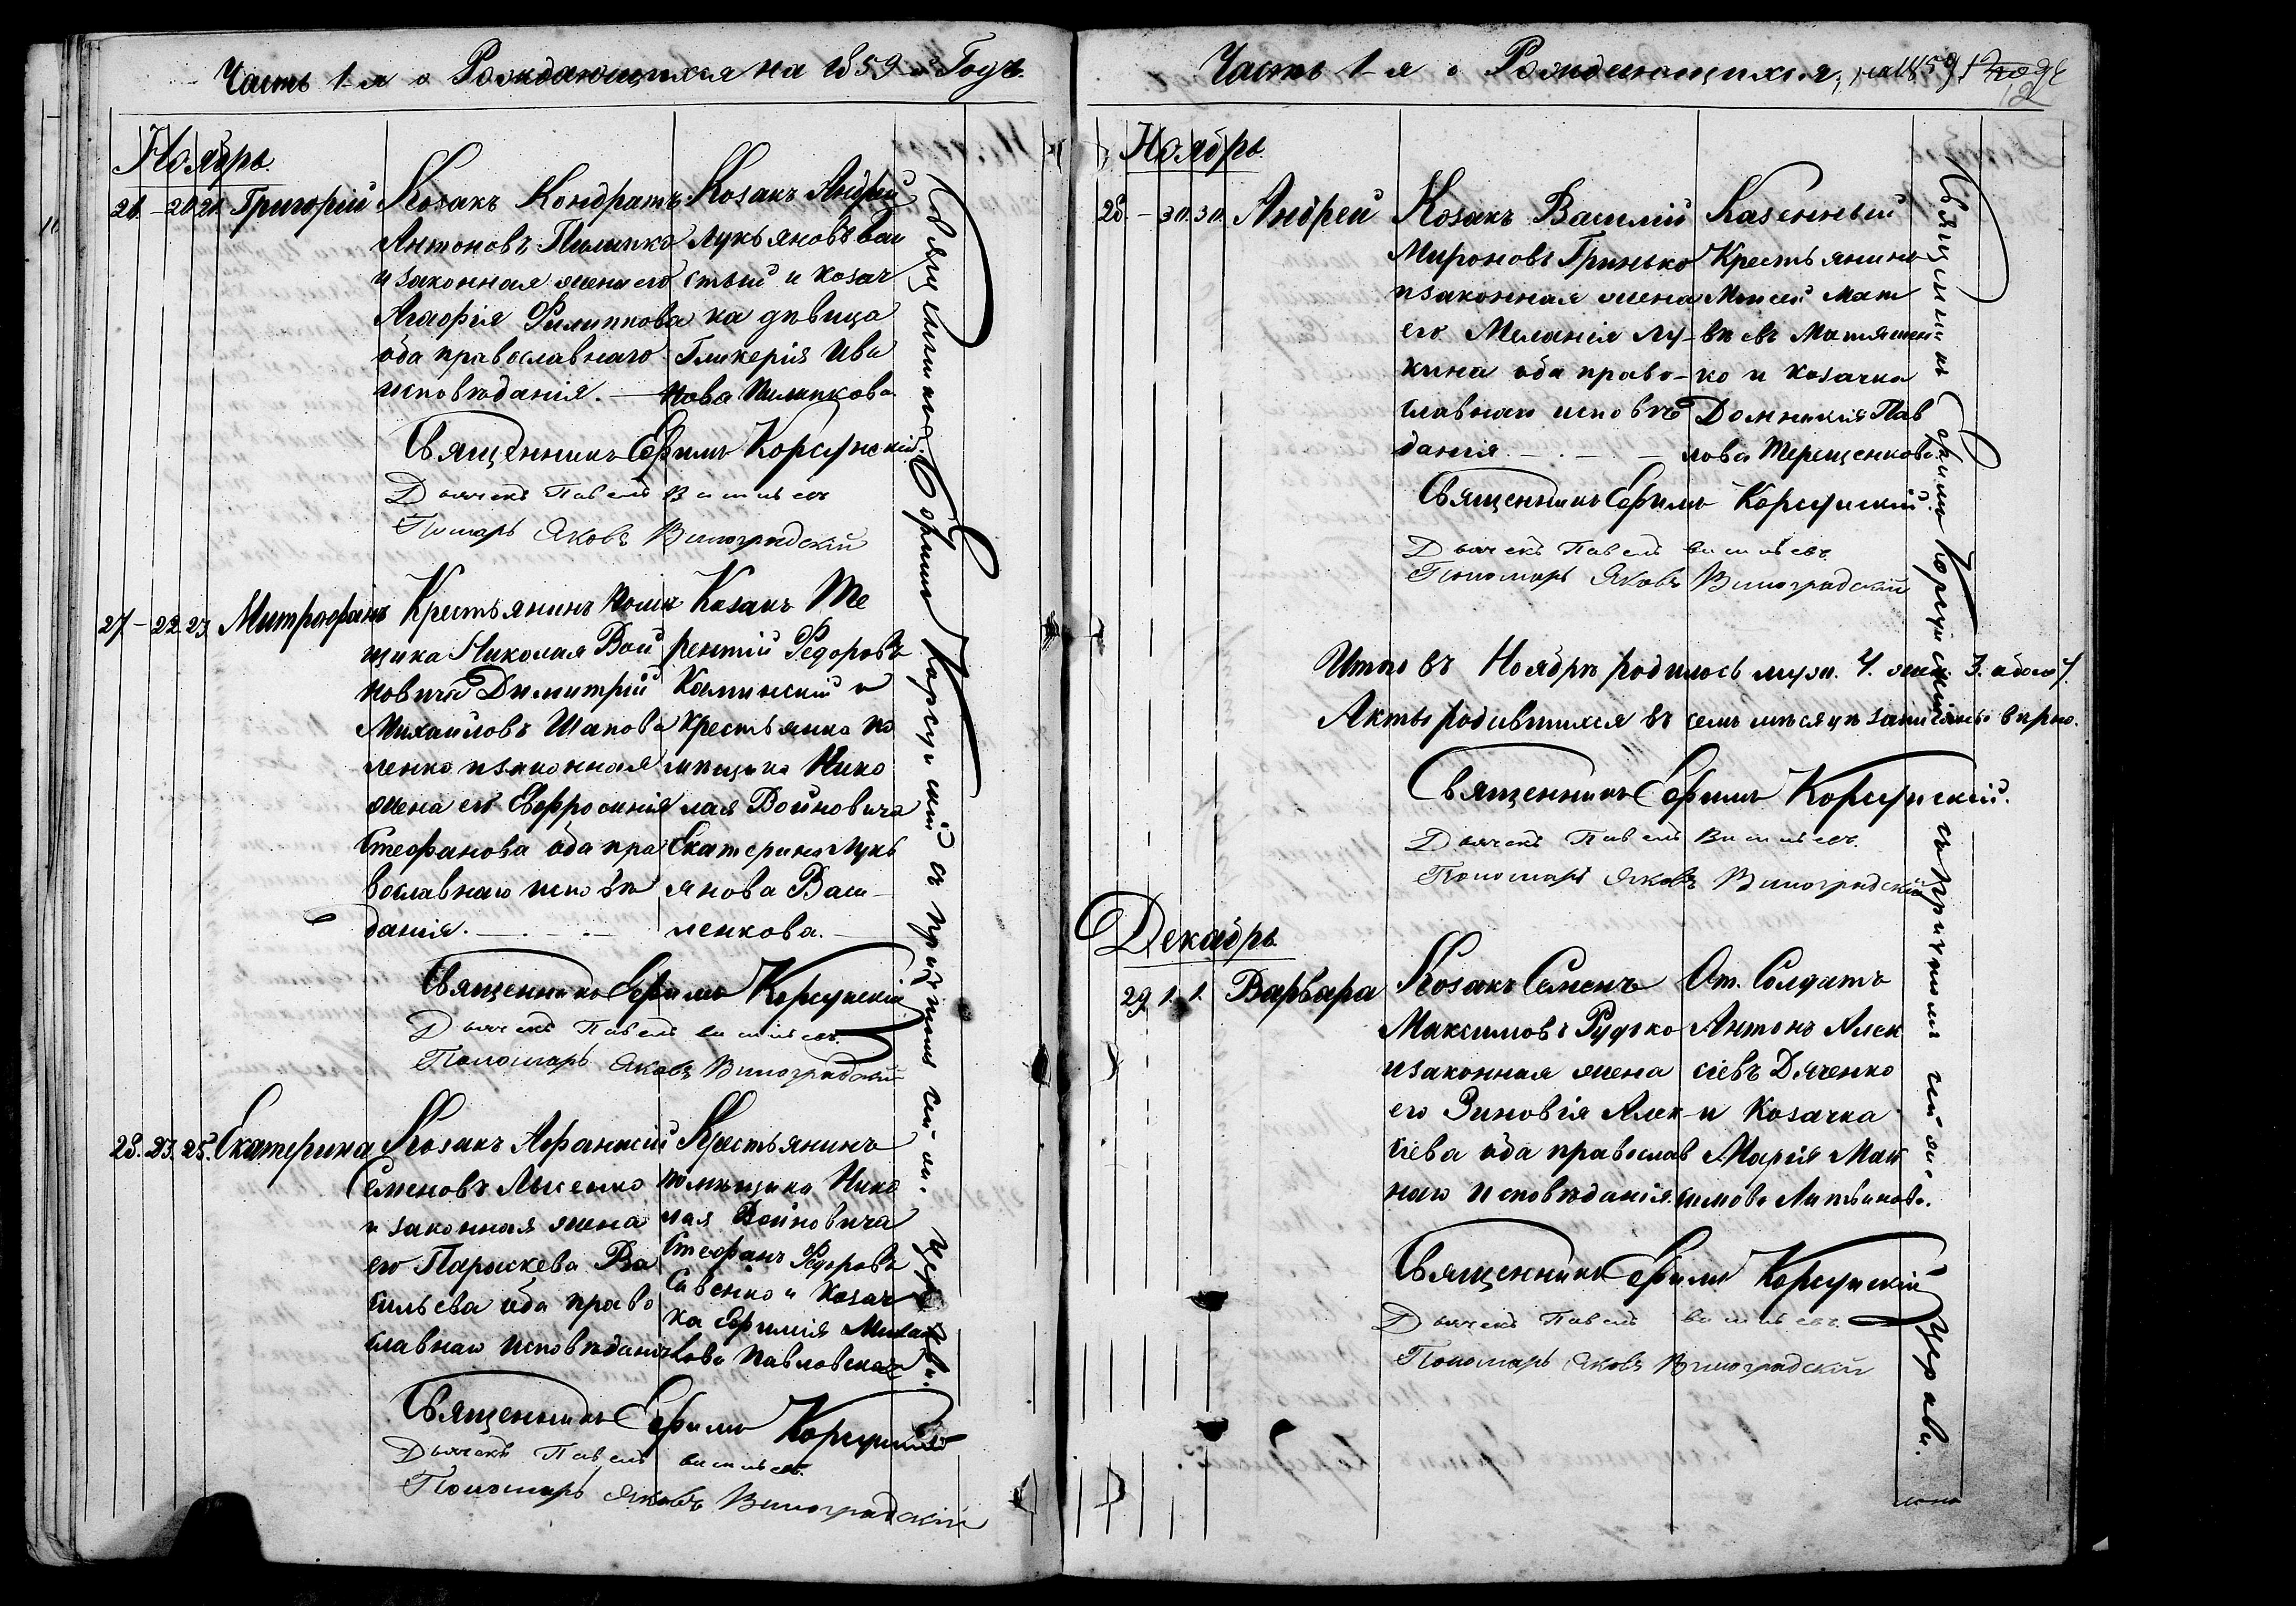 Часть 1-я о Рождающихся на 1859-й Годъ.
Ноябрь.
26. - 20 21. Григорій
Козакъ Кондратъ
Антоновъ Пилипко
и законная жена его
Агафія Филиппова
оба православнаго
исповѣданія. —
Козакъ Андрей
Лукьяновъ
и козач
ка дѣвица
Гликерія Ива
нова Пилипкова
Священникъ Ефимъ Корсунскій.
Дьячекъ Павелъ Васильевъ
Пономарь Яковъ Виноградскій
27. - 22. 23. Митрофанъ
Крестьянинъ помѣ
щика Николая Вой
новича Димитрій
Михайловъ Шапова
ленко и законная
жена его Евфросинія
Стефанова оба пра
вославнаго исповѣ
данія. — . — . —
Козакъ Те
рентій Федоровъ
Калинскій и
крестьянка по
мѣщика Нико
лая Войновича
Екатерина Лукь
янова Васи-
ленкова. —
Священникъ Ефимъ Корсунскій
Дьячекъ Павелъ Васильевъ.
Пономарь Яковъ Виноградскій
28. 23. 25. Екатерина
Козакъ Афанасій
Семеновъ Лысенко
и законная жена
его Параскева Ва
сильева оба право
славнаго исповѣданія
Крестьянинъ
помѣщика Нико
лая Войновича
Стефанъ Федоровъ
Савенко и козач
ка Ефимія Михай
лова Павловская
Священникъ Ефимъ Корсунскій
Дьячекъ Павелъ Васильевъ.
Пономарь Яковъ Виноградскій
Священникъ Ефимъ Корсунскій съ причтомъ сей же церкви.
Часть 1-я о Рождающихся, на 1859 годъ
12
Ноябрь
28. - 30. 30. Андрей
Козакъ Василій
Мироновъ Гринько
и законная жена
его Меланія Лу-
кина оба право-
славнаго исповѣ
данія — . — . —
Казенный
Крестьянинъ
Моисей Мат
вѣевъ Матяшен-
ко и козачка
Домникія Пав
лова Терещенкова.
Священникъ Ефимъ Корсунскій.
Дьячекъ Павелъ Васильевъ.
Пономарь Яковъ Виноградскій
Итого въ Ноябрѣ родилось муж. 4. жен. 3. обоего 7.
Акты родившихся въ семъ мѣсяцѣ записаны вѣрно.
Священникъ Ефимъ Корсунскій.
Дьячекъ Павелъ Васильевъ.
Пономарь Яковъ Виноградскій
Декабрь
29. 1. 1. Варвара
Козакъ Семенъ
Максимовъ Рудько
и законная жена
его Зиновія Алек-
сіева оба православ
наго исповѣданія.
От. Солдатъ
Антонъ Алек
сіевъ Дяченко
и козачка
Марія Мак
симова Литвинова.
Священникъ Ефимъ Корсунскій
Дьячекъ Павелъ Васильевъ.
Пономарь Яковъ Виноградскій
Священникъ Ефимъ Корсунскій съ причтомъ сей же церкви.